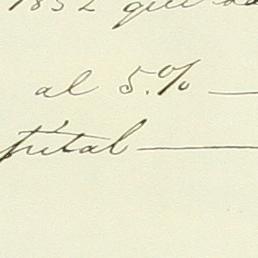 1852 que
al 5.% —
pital —